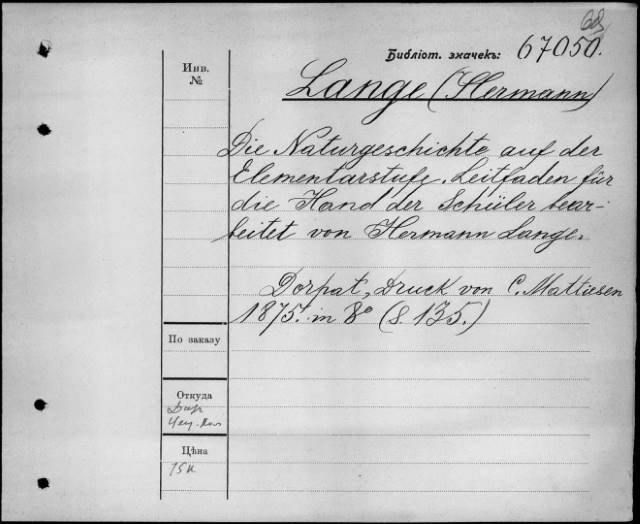 Библіот. значекъ: 67050.
Инв.
№
Lange (Hermann)
Die Naturgeschichte auf der
Elementarstufe. Leitfaden für
die Hand der Schüler bear-
beitet von Hermann Lange.
Dorpat, Druck von C. Mattiesen
1875. in 8° (S. 135.)
По заказу
Откуда
Цѣна
75 к